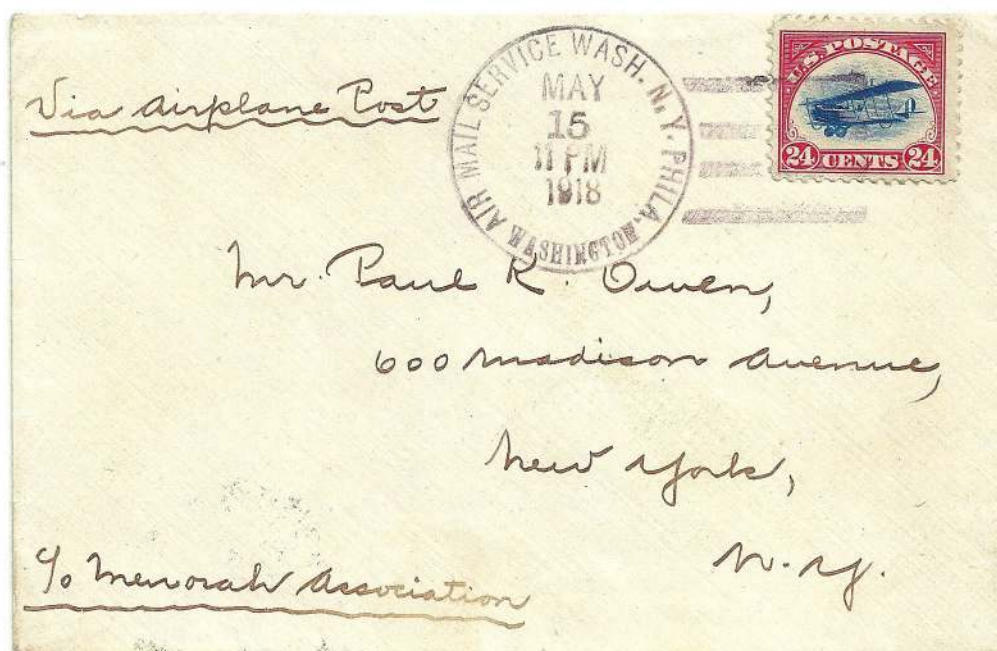 Via Airplane Post
AIR MAIL SERVICE WASH. N.Y. PHILA.
MAY
15
11 PM
1918
WASHINGTON.
U.S. POSTAGE
24 CENTS 24
Mr. Paul R. Owen,
600 Madison Avenue,
New York,
N.Y.
c/o Menorah Association